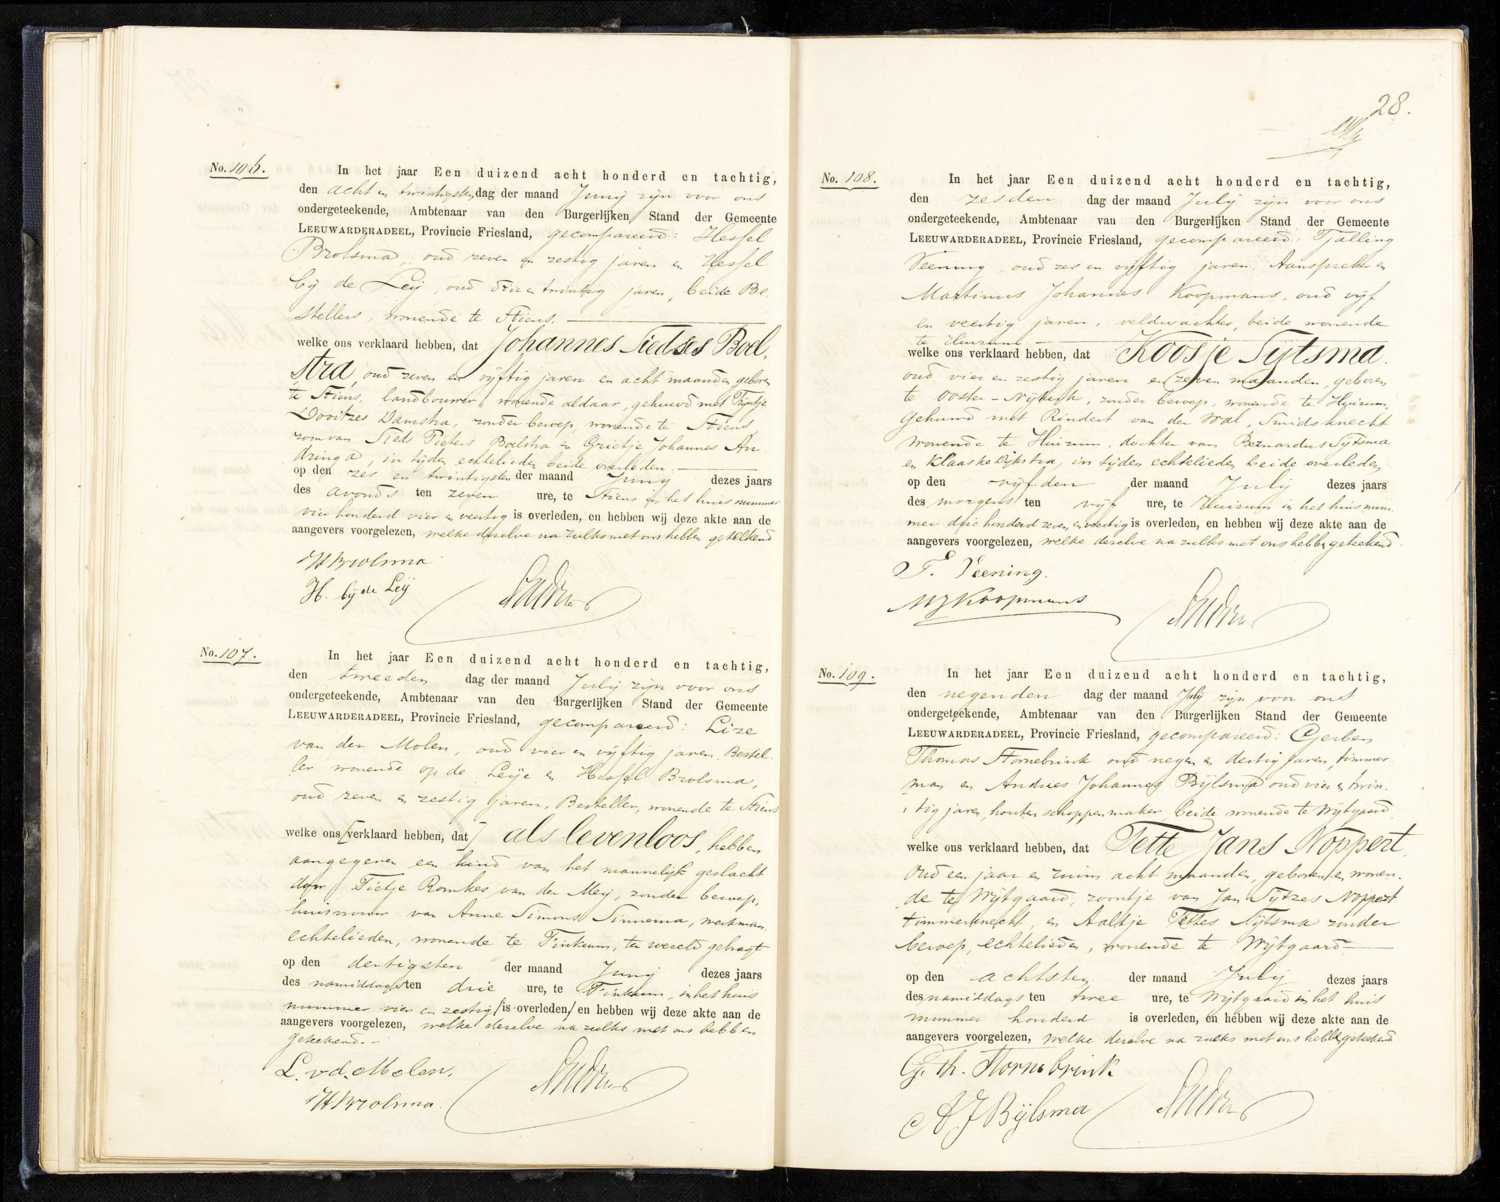 No. 106.
In het jaar Een duizend acht honderd en tachtig,
den acht en twintigsten dag der maand Junij zijn voor ons
ondergeteekende, Ambtenaar van den Burgerlijken Stand der Gemeente
LEEUWARDERADEEL, Provincie Friesland, gecompareerd: Hessel
Brolsma, oud zeven en zestig jaren en Hessel
bij de Leij, oud drie en twintig jaren, beide Be-
stellers, wonende te Stiens.
welke ons verklaard hebben, dat Johannes Tiedses Boel-
stra, oud zeven en vijftig jaren en acht maanden, geboren
te Stiens, landbouwer, wonende aldaar, gehuwd met Trijntje
Dooitzes Damstra, zonder beroep, wonende te Stiens,
zoon van Tieds Pieters Boelstra en Grietje Johannes An-
dringa, in tijden echtelieden beide overleden.
op den zes en twintigsten der maand Junij dezes jaars
des avonds ten zeven ure, te Stiens in het huis nummer
vier honderd vier en veertig is overleden, en hebben wij deze akte aan de
aangevers voorgelezen, welke dezelve na zulks met ons hebben geteekend
H Brolsma
H. bij de Leij
No. 107.
In het jaar Een duizend acht honderd en tachtig,
den tweeden dag der maand Julij zijn voor ons
ondergeteekende, Ambtenaar van den Burgerlijken Stand der Gemeente
LEEUWARDERADEEL, Provincie Friesland, gecompareerd: Lize
van der Molen, oud vier en vijftig jaren, Bestel-
ler wonende op de Leije en Hessel Brolsma,
oud zeven en zestig jaren, Besteller, wonende te Stiens
welke ons [verklaard hebben, dat] als levenloos, hebben
aangegeven een kind van het mannelijk geslacht
door Tietje Romkes van der Meij, zonder beroep,
huisvrouw van Anne Simons Sinnema, werkman,
echtelieden, wonende te Finkum, ter wereld gebragt
op den dertigsten der maand Junij dezes jaars
des namiddags ten drie ure, te Finkum, in het huis
nummer vier en zestig [is overleden] en hebben wij deze akte aan de
aangevers voorgelezen, welke dezelve na zulks met ons hebben
geteekend.
L. v.d. Molen.
H Brolsma
28.
No. 108.
In het jaar Een duizend acht honderd en tachtig,
den zesden dag der maand Julij zijn voor ons
ondergeteekende, Ambtenaar van den Burgerlijken Stand der Gemeente
LEEUWARDERADEEL, Provincie Friesland, gecompareerd: Tjalling
Veening, oud zes en vijftig jaren, Aanspreker en
Martinus Johannes Koopmans, oud vijf
en veertig jaren, veldwachter, beide wonende
te Huizum
welke ons verklaard hebben, dat Koosje Sytsma.
oud vier en zestig jaren en zeven maanden, geboren
te Ooster-Nijkerk, zonder beroep, wonende te Huizum,
gehuwd met Reindert van der Wal, Smidsknecht
wonende te Huizum, dochter van Bernardus Sytsma
en Klaaske Dijkstra, in tijden echtelieden beide overleden,
op den vijfden der maand Julij dezes jaars
des morgens ten vijf ure, te Huizum in het huis num-
mer drie honderd zeven en veertig is overleden, en hebben wij deze akte aan de
aangevers voorgelezen, welke dezelve na zulks met ons hebben geteekend.
T. Veening.
M J Koopmans
No. 109.
In het jaar Een duizend acht honderd en tachtig,
den negenden dag der maand July zijn voor ons
ondergeteekende, Ambtenaar van den Burgerlijken Stand der Gemeente
LEEUWARDERADEEL, Provincie Friesland, gecompareerd: Gerben
Thomas Hornsbrink oud negen en dertig jaren, timmer-
man en Andries Johannes Bijlsma oud vier en twin-
tig jaren, houten schoppenmaker beide wonende te Wijtgaard
welke ons verklaard hebben, dat Tette Jans Noppert,
Oud een jaar en ruim acht maanden, geboren en wonen-
de te Wijtgaard, zoontje van Jan Sytzes Noppert
timmerknecht, en Aaltje Tettes Sijtsma zonder
beroep, echtelieden, wonende te Wijtgaard
op den achtsten der maand Julij dezes jaars
des namiddags ten twee ure, te Wijtgaard in het huis
nummer honderd is overleden, en hebben wij deze akte aan de
aangevers voorgelezen, welke dezelve na zulks met ons hebben geteekend
G. Th. Hornsbrink
A J Bijlsma